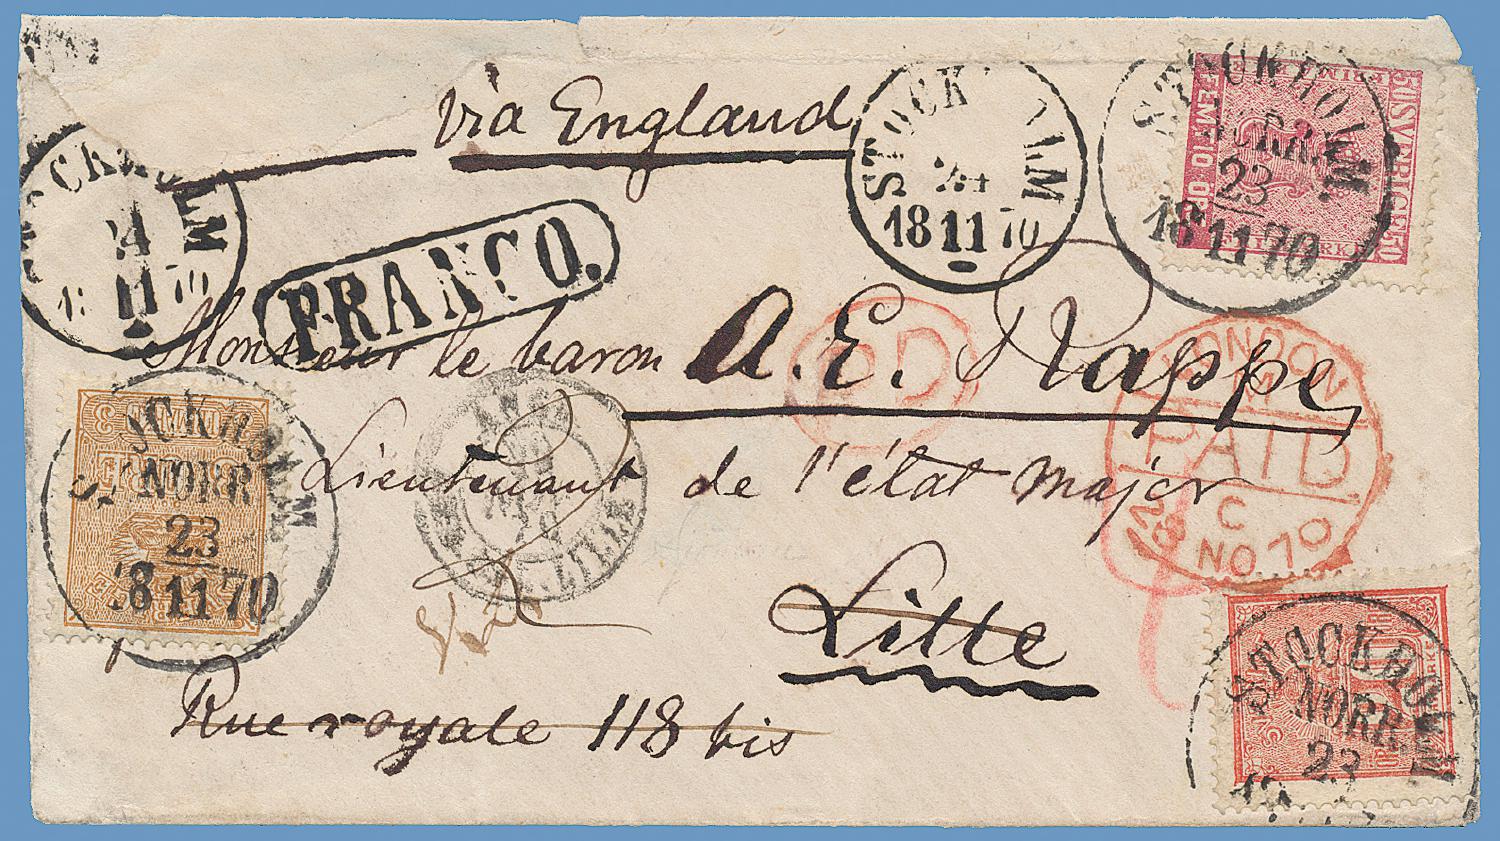 via England
STOCKHOLM
24
18 11 70
STOCKHOLM
24
18 11 70
STOCKHOLM
NORR.
23
18 11 70
SVERIGE
FEMTIO ÖRE
FRIMÄRKE
50
FRANCO.
Monsieur le baron A. E. Rappe
PD
LONDON
PAID
C
28 NO 70
Lieutenant de l'état major
LILLE
STOCKHOLM
NORR
23
18 11 70
3
Lille
Rue royale 118 bis
STOCKHOLM
NORR.
23